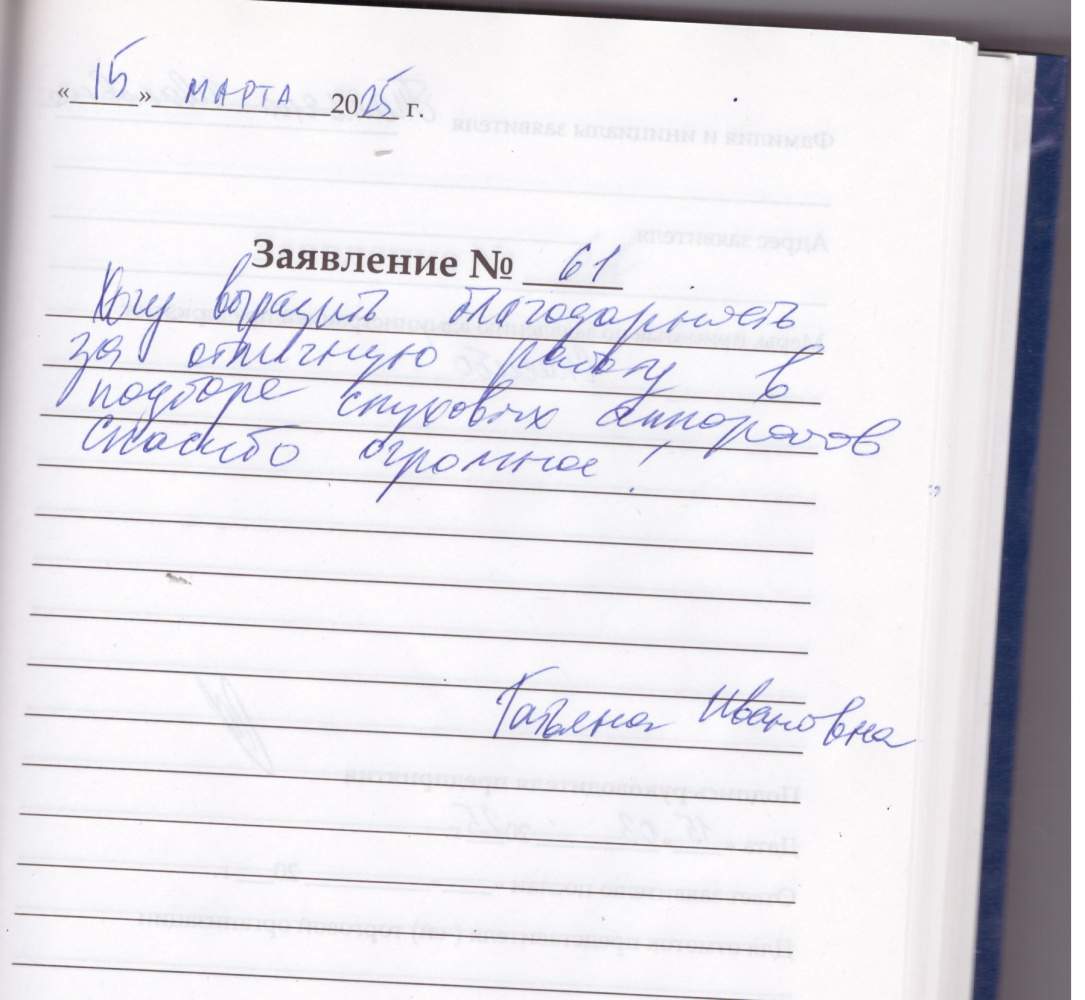 «15» МАРТА 2025 г.
Заявление № 61
Хочу выразить благодарность
за отличную работу в
подборе слуховых аппаратов
Спасибо огромное!
Татьяна Ивановна